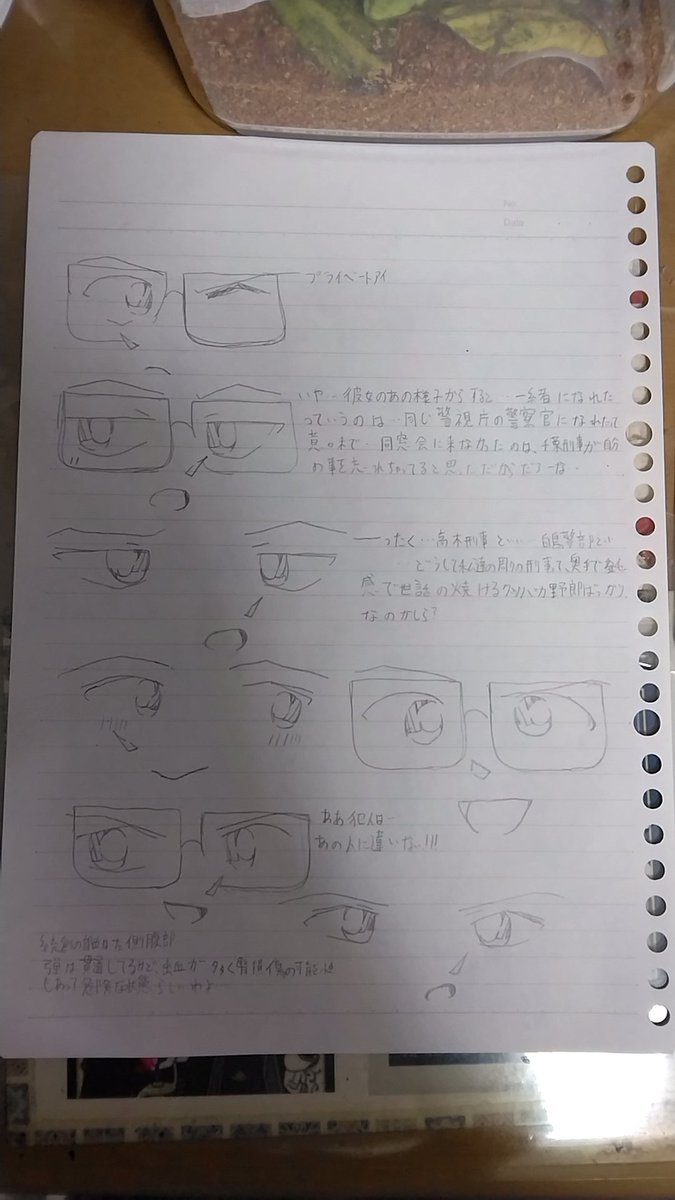 No.
Date
プライベートアイ
いや…彼女のあの様子からすると…一緒になれた
っていうのは…同じ警視庁の警察官になれたって
意味で…同窓会に来なかったのは、千葉刑事が自分
の事を忘れちゃってると思ったからだろーな…
ったく…高木刑事といい…白鳥警部といい
…どうして私達の周りの刑事って、奥手で鈍
感で世話の焼けるクソバカ野郎ばっかり
なのかしら?
ああ犯人は…
あの人に違いない!!!
側腹部
弾は貫通してるけど、出血が多く腎損傷の可能性
もあって危険な状態らしいわよ